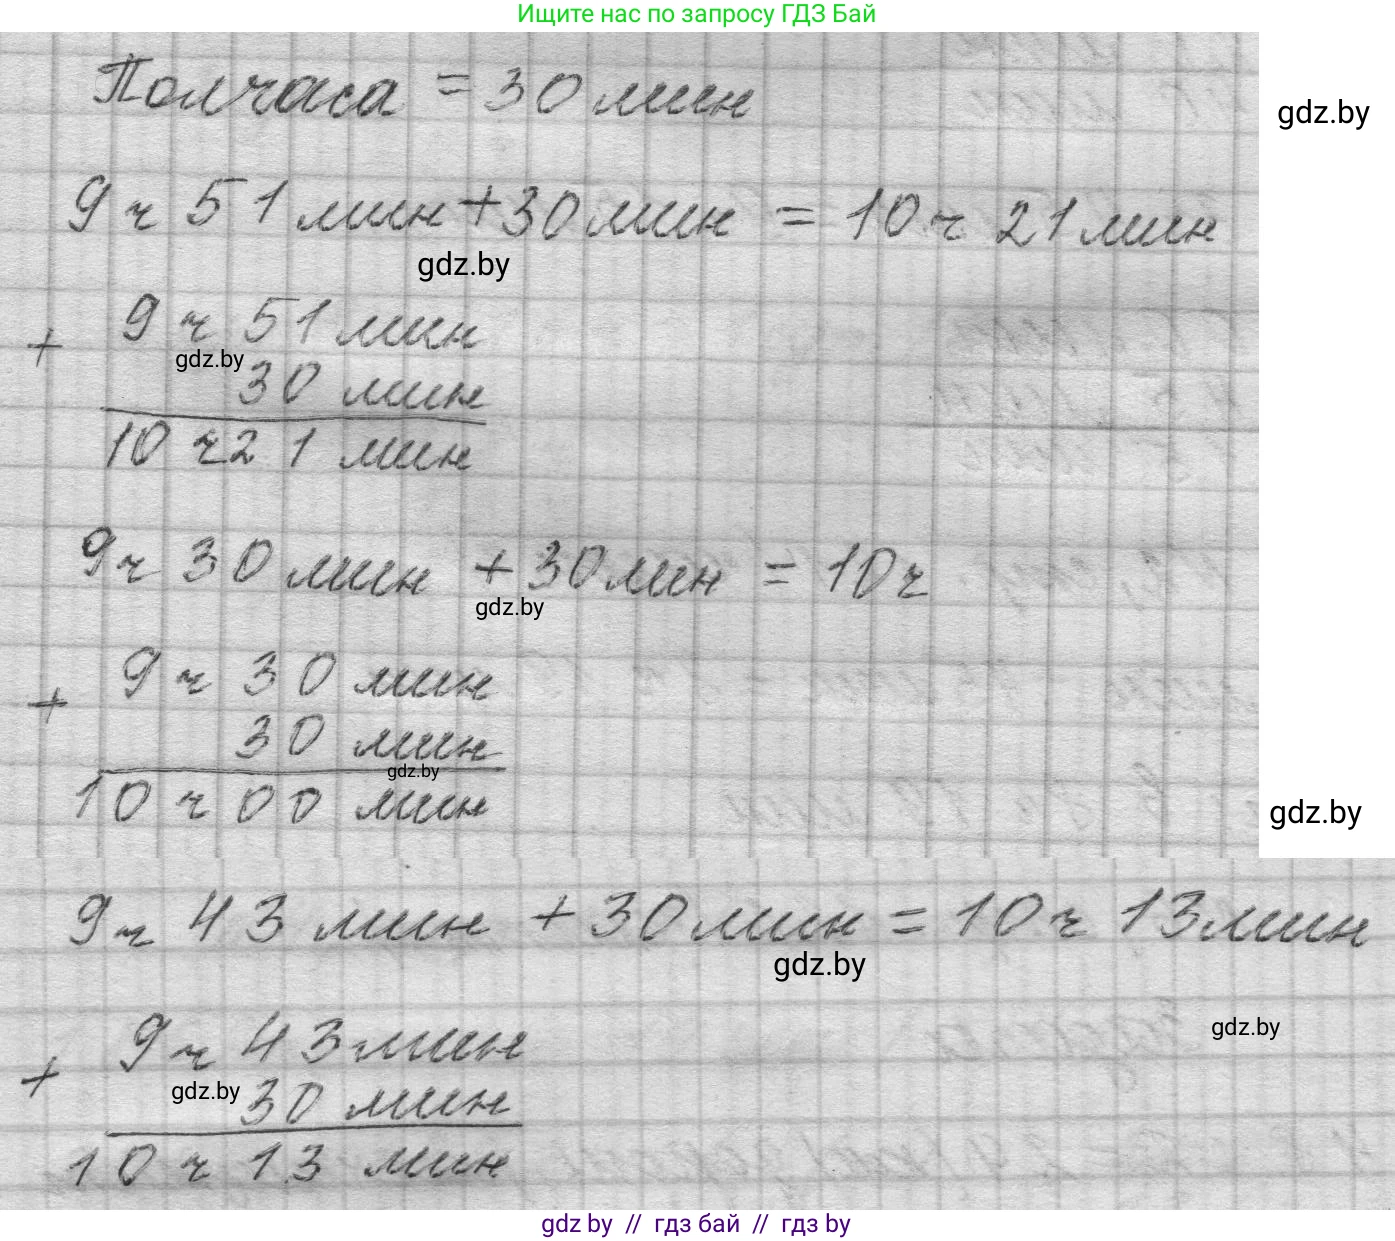 Ищите нас по запросу ГДЗ Бай
Полчаса = 30 мин
gdz.by
9 ч 51 мин + 30 мин = 10 ч 21 мин
gdz.by
+ 9 ч 51 мин
gdz.by
30 мин
10 ч 21 мин
9 ч 30 мин + 30 мин = 10 ч
gdz.by
+ 9 ч 30 мин
30 мин
gdz.by
10 ч 00 мин
gdz.by
9 ч 43 мин + 30 мин = 10 ч 13 мин
gdz.by
+ 9 ч 43 мин
gdz.by
gdz.by
30 мин
10 ч 13 мин
gdz by // гдз бай // гдз by